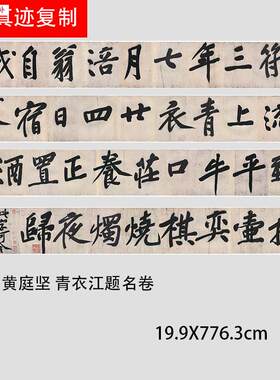 真迹复制
符三年七月涪翁自
流上青衣廿四日宿
平牛口莊養正置酒
壺弈棋燒燭夜歸
黄庭坚 青衣江题名卷
19.9X776.3cm